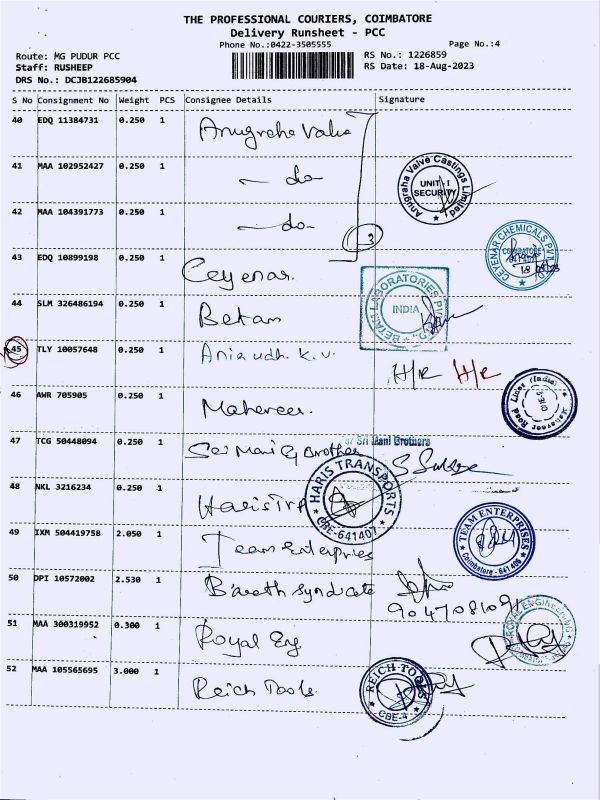 THE PROFESSIONAL COURIERS, COIMBATORE
Delivery Runsheet - PCC
Phone No.:0422-3505555
Page No.:4
Route: MG PUDUR PCC
RS No.: 1226859
Staff: RUSHEEP
RS Date: 18-Aug-2023
DRS No.: DCJB122685904
S No Consignment No Weight PCS Consignee Details Signature
40 EDQ 11384731 0.250 1 Anugraha Valve
41 MAA 102952427 0.250 1 -do-
Anugraha Valve Castings Limited
UNIT-I
SECURITY
42 MAA 104391773 0.250 1 -do-
3
CEYENAR CHEMICALS PVT.
COIMBATORE
43 EDQ 10899198 0.250 1 Ceyenar.
LABORATORIES
INDIA
44 SLM 326486194 0.250 1 Betam
45 TLY 10057648 0.250 1 Anirudh. K. V. H/R H/R
46 AWR 705905 0.250 1 Maheveer.
Mahaveer Road Lines (India)
47 TCG 50448094 0.250 1 Sri Mani & Brother
Sri Mani Brothers
48 NKL 3216234 0.250 1 Haris Trp
HARIS TRANSPORTS
CBE-641407
49 IXM 504419758 2.050 1 Team Enterpries
TEAM ENTERPRISES
Coimbatore - 641 406
50 DPI 10572002 2.530 1 Barath Syndicate
9047081091
51 MAA 300319952 0.300 1 Royal Eng
ROYAL ENGINEERING
52 MAA 105565695 3.000 1 Reich Tools
REICH-TOOLS
CBE-4